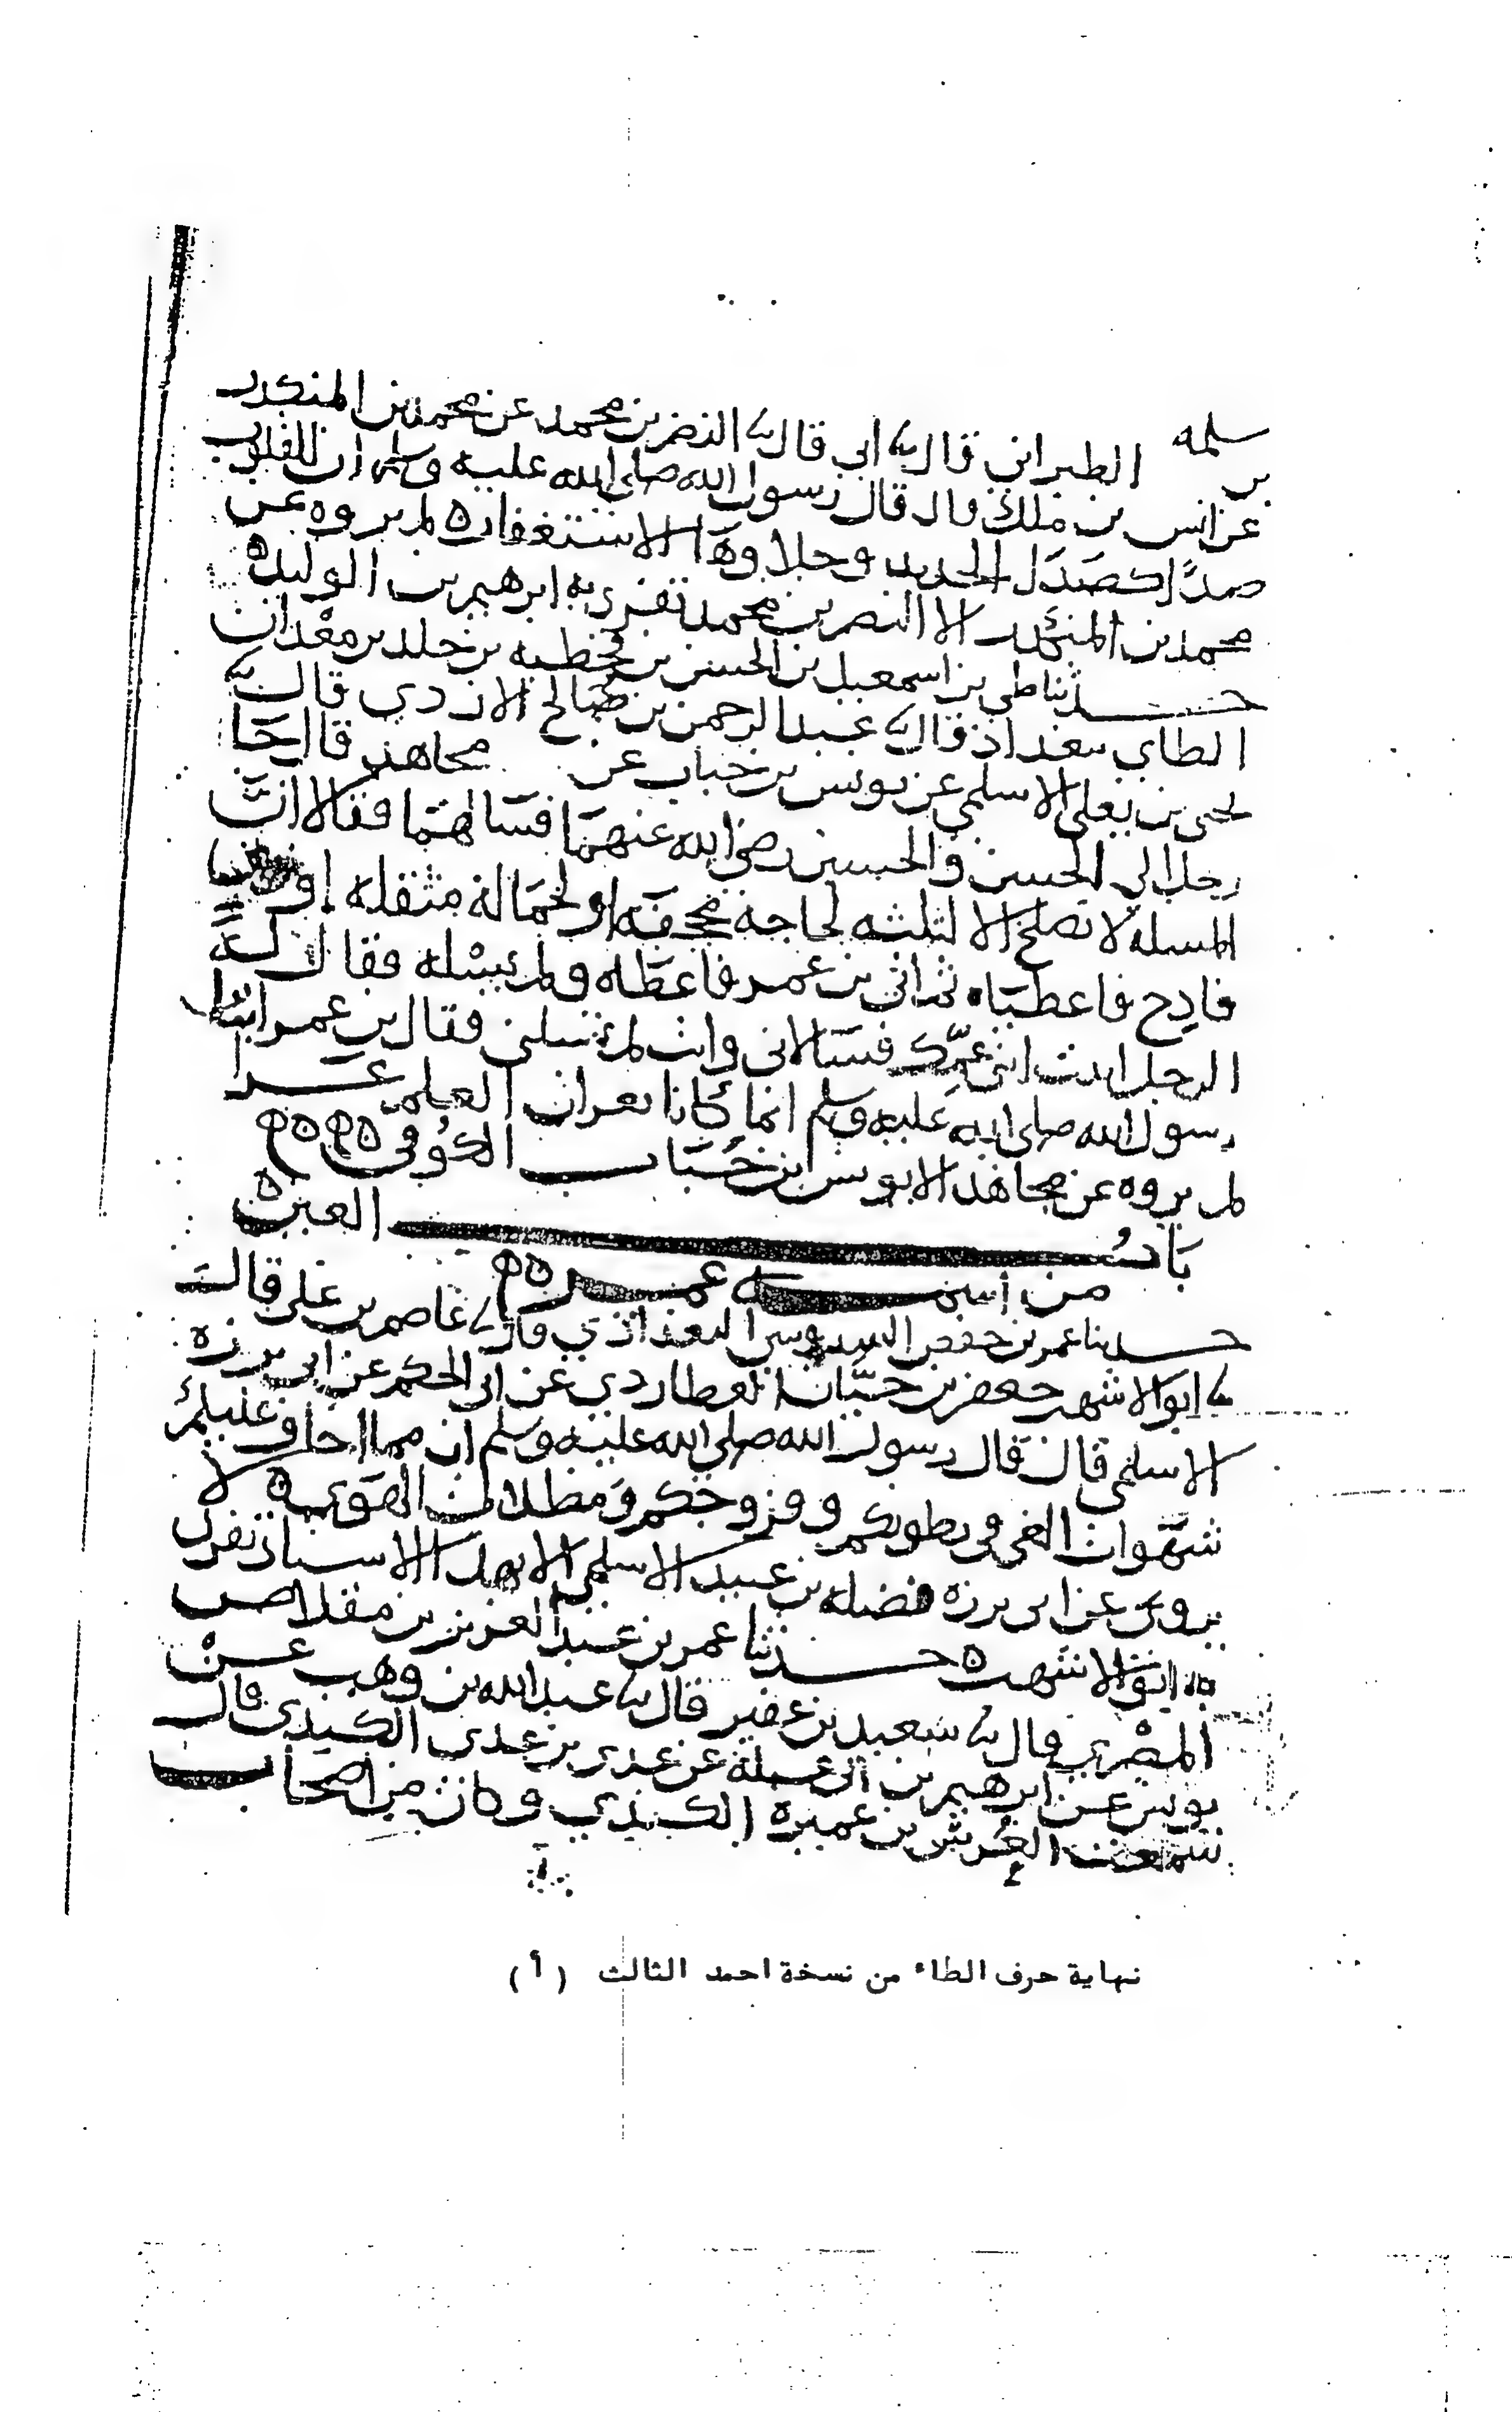 سلمه الطبراني قال نا ابي قال نا النضر بن محمد عن محمد بن المنكدر
بن
عن انس بن ملك قال قال رسول الله صلى الله عليه وسلم ان للقلوب
صدًا كصدا الحديد وجلاوها الاستغفار ه لم يروه عن
محمد بن المنكدر الا النضر بن محمد تفرد به ابرهيم بن الوليد ه
حدثنا طي بن اسمعيل بن الحسن بن قحطبه بن خلد بن معدان
الطاي ببغداد قال نا عبد الرحمن بن صالح الازدي قال نا
يحيى بن يعلى الاسلمي عن يونس بن خباب عن مجاهد قال جا
رجل الى الحسن والحسين رضي الله عنهما فسالهما فقالا ان
المسله لا تصلح الا لثلثه لحاجة مجحفه او لحمالة مثقله او
فادح فاعطياه ثم اتى بن عمر فاعطاه ولم يسله فقال له
الرجل اتيت ابني عمك فسالاني وانت لم تسلني فقال بن عمر ابنا
رسول الله صلى الله عليه وسلم انما كانا يغران العلم غرا
لم يروه عن مجاهد الا يونس ابن خباب الكوفي
باب العين ه
من اسمه عمر
حدثنا عمر بن حفص السدوسي البغداذي قال نا عاصم بن علي قال
نا ابو الاشهب جعفر بن حيان العطاردي عن ابي الحكم عن ابي برزه
الاسلمي قال قال رسول الله صلى الله عليه وسلم ان مما اخاف عليكم
شهوات الغي في بطونكم وفروجكم ومظلات الهوى ه لا
يروى عن ابي برزه فضله بن عبيد الاسلمي الا بهذا الاسناد تفرد
به ابو الاشهب ه حدثنا عمر بن عبد العزيز بن مقلاص
المصري قال نا سعيد بن عفير قال نا عبد الله بن وهب عن
يونس عن ابرهيم بن ابي عبلة عن عدي بن عدي الكندي قال
سمعت العرس بن عميره الكندي وكان من اصحاب
نهاية حرف الطاء من نسخة احمد الثالث (أ)